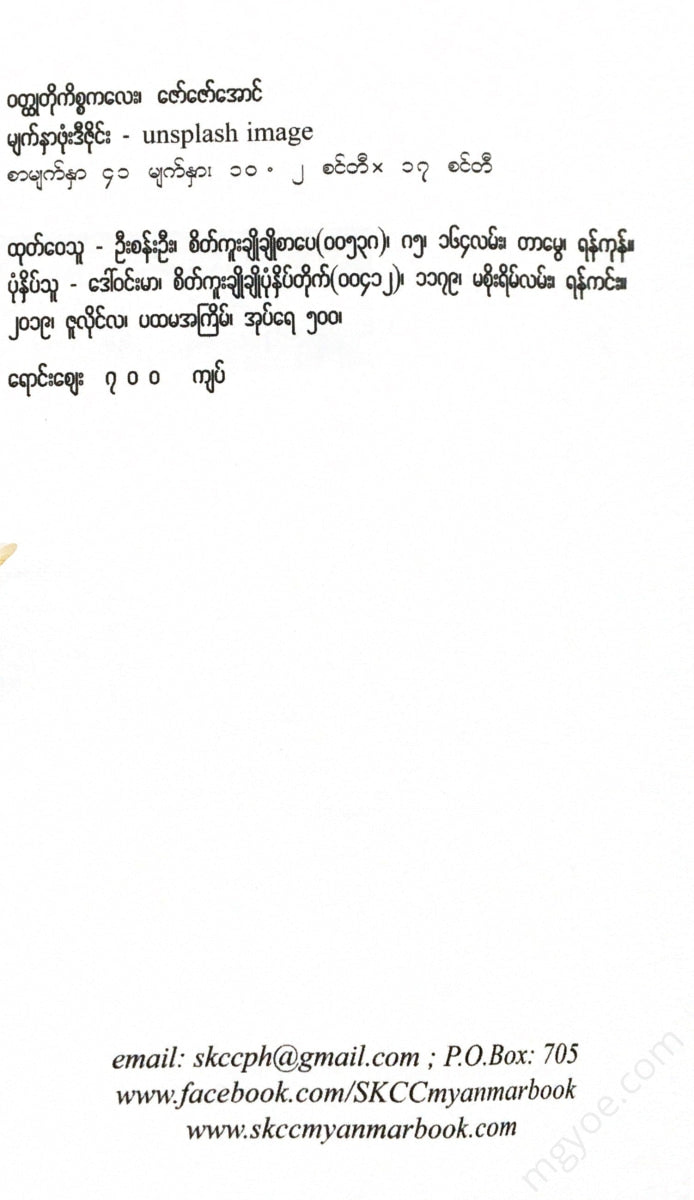 ဝတ္ထုတိုကိစ္စကလေး၊ ဇော်ဇော်အောင်
မျက်နှာဖုံးဒီဇိုင်း - unsplash image
စာမျက်နှာ ၄၁ မျက်နှာ၊ ၁၀ . ၂ စင်တီ× ၁၇ စင်တီ
ထုတ်ဝေသူ - ဦးစန်းဦး၊ စိတ်ကူးချိုချိုစာပေ(၀၀၅၃၈)၊ ဂ၅၊ ၁၆၄လမ်း၊ တာမွေ၊ ရန်ကုန်။
ပုံနှိပ်သူ - ဒေါ်ဝင်းမာ၊ စိတ်ကူးချိုချိုပုံနှိပ်တိုက်(၀၀၄၁၂)၊ ၁၁၇၉၊ မစိုးရိမ်လမ်း၊ ရန်ကင်း။
၂၀၁၉၊ ဇူလိုင်လ၊ ပထမအကြိမ်၊ အုပ်ရေ ၅၀၀၊
ရောင်းဈေး ၇ ၀ ၀ ကျပ်
email: skccph@gmail.com ; P.O.Box: 705
www.facebook.com/SKCCmyanmarbook
www.skccmyanmarbook.com
mgyoe.com